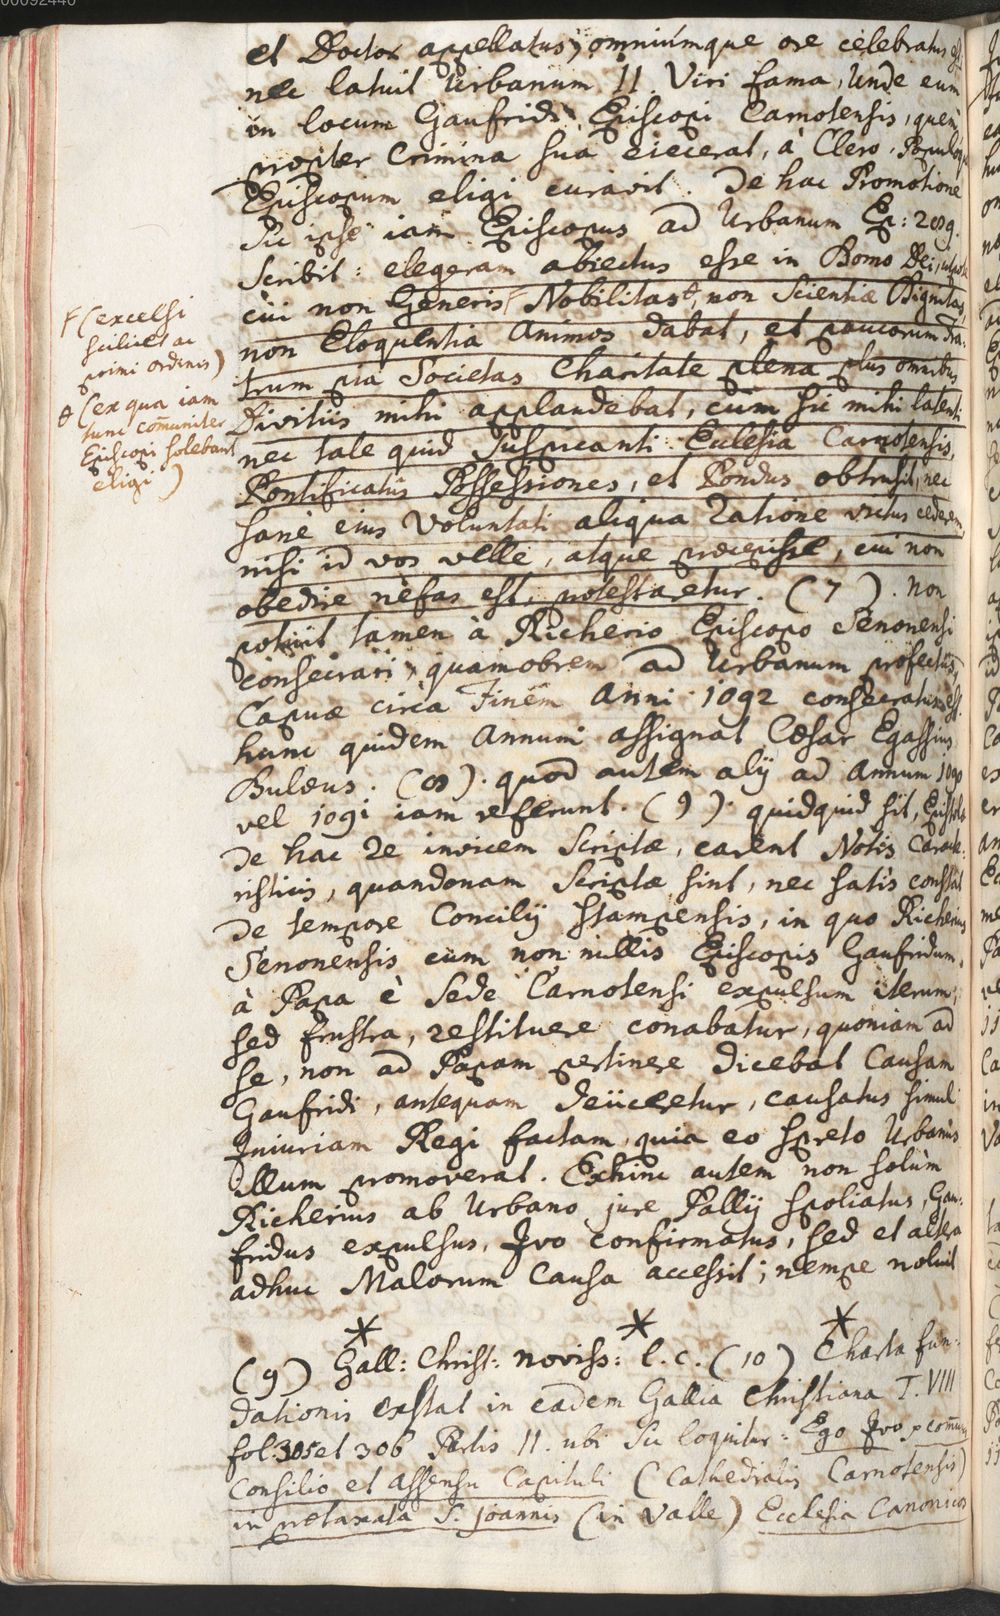 00092440
et Doctor appellatus, omniúmque ore celebratus est
nec latuit Urbanum II. Viri fama, Unde eum
in locum Gaufridi Episcopi Carnotensis, quem
propter Crimina sua eiecerat, à Clero, Populoque
Episcopum eligi curavit. De hac Promotione
Sic ipse iam Episcopus ad Urbanum Ep: 289.
Scribit: elegeram abiectus esse in Domo Dei, utpote
cui non Generis F Nobilitas ϑ, non Scientiæ Dignitas,
non Eloquentia Animos dabat, et paucorum Fra-
trum pia Societas Charitate plena plus omnibus
Divitiis mihi applaudebat, cum sic mihi latenti
nec tale quid Suspicanti Ecclesia Carnotensis,
Pontificatûs Possessiones, et Pondus obtrusit, nec
sanè eius Voluntati aliqua Ratione victus cederem
nisi id vos velle, atque præcepisse, cui non
obedire nefas est, protestaretur. (7). non
potuit tamen à Richerio Episcopo Senonensi
consecrari, quamobrem ad Urbanum profectus,
Capuæ circa Finem Anni 1092 consecratus est.
hunc quidem Annum assignat Cæsar Egassius
Bulæus. (8). quod autem alij ad Annum 1090
vel 1091 iam referunt. (9). quidquid sit, Epistolæ
de hac re invicem Scriptæ, carent Notis Characte-
risticis, quandonam Scriptæ sint, nec satis constat
de tempore Concilij Stampensis, in quo Richerius
Senonensis cum non nullis Episcopis Gaufridum,
à Papa è Sede Carnotensi expulsum iterum,
sed frustra, restituere conabatur, quoniam ad
se, non ad Papam pertinere dicebat Causam
Gaufridi, antequam deijceretur, causatus simul
Iniuriam Regi factam, quia eo spreto Urbanus
illum promoverat. Exhinc autem non solùm
Richerius ab Urbano jure Pallij spoliatus, Gau-
fridus expulsus, Ivo confirmatus, sed et altera
adhuc Malorum Causa accessit; nempe noluit
F (excelsi
scilicet ac
primi ordinis)
ϑ (ex qua iam
tunc comūniter
Episcopi solebant
eligi)
* * *
(9) Gall: Christ: noviss: l. c. (10) Charta fun-
dationis exstat in eadem Gallia Christiana T. VIII
fol. 305 et 306 Partis II. ubi Sic loquitur: Ego Ivo
Consilio et Assensu Capituli (Cathedralis Carnotensis)
in prætaxata S. Joannis (in Valle) Ecclesia Canonicos